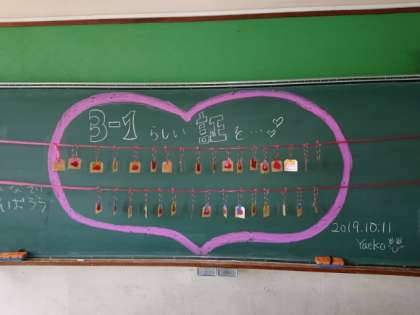 3-1 らしい 証 を…
2019.10.11
Yaeko